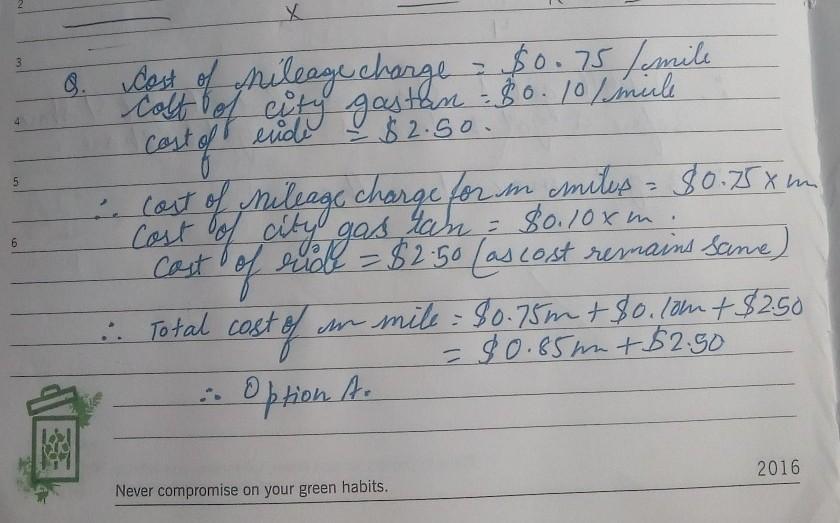 2
x
3
Q. Cost of mileage charge = $0.75 /mile
Cost of city gas tax = $0.10/mile
4
Cost of ride = $2.50.
5
∴ Cost of mileage charge for m miles = $0.75 x m
Cost of city gas tax = $0.10 x m.
6
Cost of ride = $2.50 (as cost remains same)
∴ Total cost of m mile = $0.75m + $0.10m + $2.50
= $0.85m + $2.50
∴ Option A.
2016
Never compromise on your green habits.